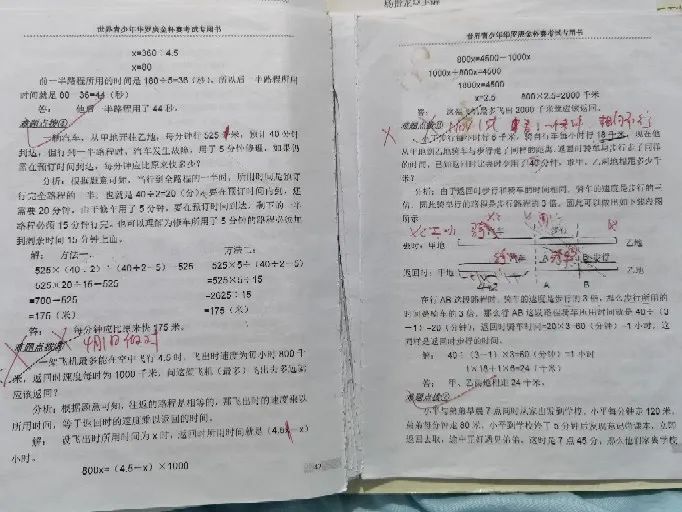 世界青少年华罗庚金杯赛考试专用书
x=360÷4.5
x=80
前一半路程所用的时间是180÷5=36(秒),所以后一半路程所用
时间就是80-36=44(秒)
答:他后一半路程用了44秒。
难题点拨④
一辆汽车,从甲地开往乙地,每分钟行525千米,预计40分钟
到达,但行到一半路程时,汽车发生故障,用了5分钟修理,如果仍
需在预订时间到达,每分钟应比原来快多少?
分析:根据题意可知,当行到全路程的一半,所用时间是预订
行完全路程的一半,也就是40÷2=20(分),要在预订时间内到,还
需要20分钟,由于修车用了5分钟,要在预订时间到达,剩下的一半
路程必须15分钟行完,也可以理解为修车所用了5分钟的路程必须加
到剩余时间15分钟上面。
解:方法一: 方法二:
525×(40÷2)÷(40÷2-5)-525 525×5÷(40÷2-5)
=525×20÷15-525 =525×5÷15
=700-525 =2625÷15
=175(米) =175(米)
答:每分钟应比原来快175米。
难题点拨⑤
一架飞机最多能在空中飞行4.5时,飞出时速度为每小时800千
米,返回时速度每时为1000千米,问这架飞机(最多)飞出去多远就
应该返回?
分析:根据题意可知,往返的路程是相等的,那飞出时的速度乘以
所用时间,等于返回时的速度乘以返回的时间。
解:设飞出时所用时间为x时,返回时所用时间就是(4.5-x)
小时。
800x=(4.5-x)×1000
47
世界青少年华罗庚金杯赛考试专用书
800x=4500-1000x
1000x+800x=4500
1800x=4500
x=2.5 800×2.5=2000千米
答:这架飞机最多飞出2000千米就应该返回。
难题点拨⑥
小王步行每小时行6千米,骑自行车每小时行18千米,现在他
从甲地到乙地骑车与步行走了同样的距离,返回时骑车与步行走了同样
的时间,已知返回时比去时少用了40分钟,求甲、乙两地相距多少千
米?
分析:由于返回时步行和骑车的时间相同,骑车的速度是步行的三
倍,因此骑车行的路程是步行路程的3倍,因此可以做出如下线段图
所示
步行
去时:甲地 乙地
A B步行
返回时:甲地 A B 乙地
在行AB这段路程时,骑车的速度是步行的3倍,那么步行所用的
时间是骑车的3倍,那么行AB这段路程骑车所用时间就是40÷(3
-1)=20(分钟),返回时骑车时间=20×3=60(分钟)=1小时,这
同样是返回时步行的时间。
解:40÷(3-1)×3=60(分钟)=1小时
1×18+1×6=24(千米)
答:甲、乙两地相距24千米。
小平与弟弟早晨7点同时从家出发到学校,小平每分钟走120米,
弟弟每分钟走80米,小平到学校待了5分钟后发现忘记带课本,立即
返回去取,途中正好遇见弟弟,这时是7点45分,那么他们家离学校